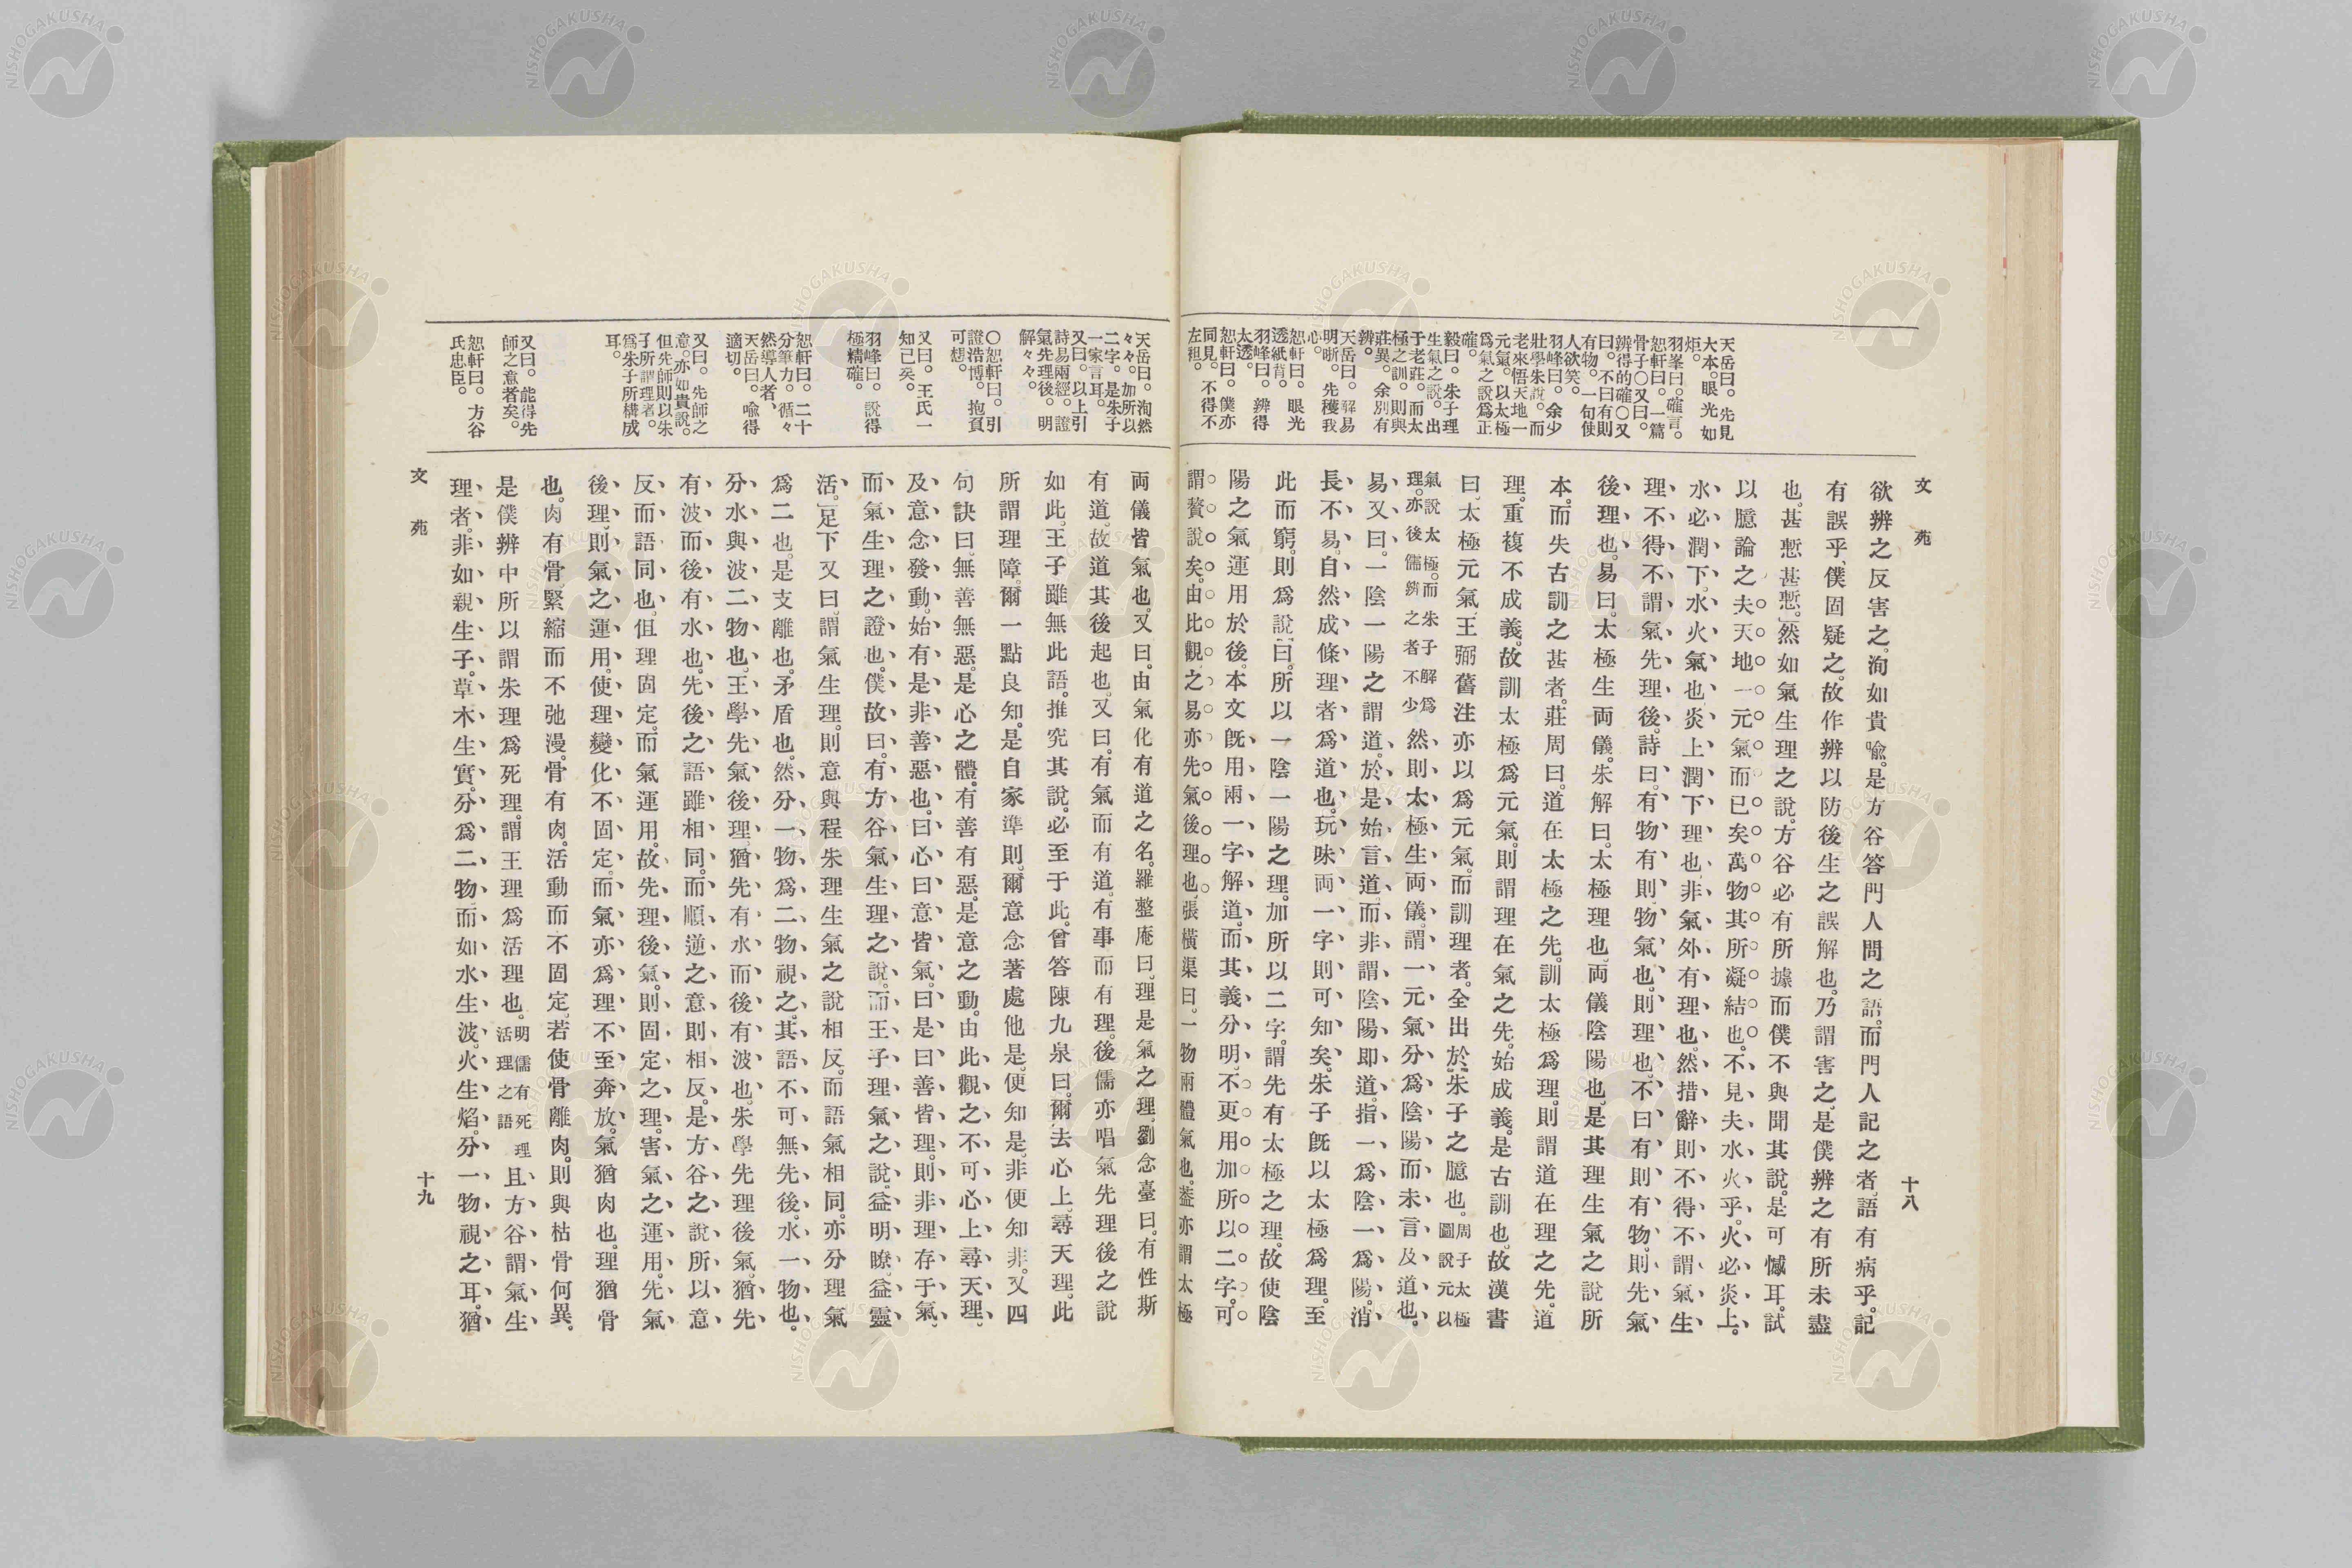 文苑
十八
天岳曰。先見
大本。眼光如
炬。
羽峯曰。確言。
恕軒曰。一篇
骨子〇又曰。
辨得的確〇又
曰。不曰有則
有物。一句使
人欲笑。
羽峰曰。余少
壯學朱說。而
老來悟天地一
元氣。以太極
爲氣之說爲正
確。
毅曰。朱子理
生氣之說。出
于老莊。而太
極之訓。則與
莊異。余別有
辨。
天岳曰。釋易
明晰。先穫我
心。
恕軒曰。眼光
透紙背。
羽峰曰。辨得
太透。
恕軒曰。僕亦
同見。不得不
左袒。
欲辨之反害之。洵如貴喩。是方谷答門人問之語。而門人記之者、語有病乎。記
有誤乎、僕固疑之。故作辨以防後生之誤解也。乃謂害之。是僕辨之有所未盡
也。甚慙甚慙。」然如氣生理之說。方谷必有所據而僕不與聞其說。是可憾耳。試
以臆論之夫天地一元氣而已矣萬物其所凝結也。不見夫水火乎。火必炎上。
水必潤下。水火氣也、炎上潤下理也、非氣外有理也。然措辭則不得不謂氣生
理不得不謂氣先理後。詩曰。有物有則、物氣也、則理也、不曰有則有物。則先氣
後理也。易曰。太極生両儀。朱解曰。太極理也。両儀陰陽也。是其理生氣之說所
本。而失古訓之甚者。莊周曰。道在太極之先。訓太極爲理。則謂道在理之先。道
理。重複不成義。故訓太極爲元氣。則謂理在氣之先。始成義。是古訓也。故漢書
曰、太極元氣、王弼舊注亦以爲元氣。而訓理者。全出於朱子之臆也。周子太極圖說元以
氣說太極。而朱子解爲理。亦後儒辨之者不少然則太極生両儀。謂一元氣分爲陰陽而未言及道也。
易又曰。一陰一陽之謂道。於是始言道。而非謂陰陽即道。指一爲陰一爲陽。消
長不易。自然成條理者爲道也。玩味両一字則可知矣。朱子旣以太極爲理。至
此而窮。則爲說「曰。所以一陰一陽之理。加所以二字。謂先有太極之理。故使陰
陽之氣運用於後。本文旣用兩一字解道。而其義分明。不更用加所以二字。可
謂贅說矣。由比觀之易亦先氣後理也。張橫渠曰。一物兩體氣也。葢亦謂太極
天岳曰。洵然
々々。加所以
二字。是朱子
一家言耳。
又曰。以上引
詩易兩經。證
氣先理後。明
解々々。
〇恕軒曰。引
證浩博。抱頁
可想。
又曰。王氏一
知已矣。
羽峰曰。說得
極精確。
恕軒曰。二十
分筆力。循々
然導人者、
天岳曰。喩得
適切。
又曰。先師之
意。亦如貴說。
但先師則以朱
子所謂理者。
爲朱子所構成
耳。
又曰。能得先
師之意者矣。
恕軒曰。方谷
氏忠臣。
両儀皆氣也。又曰。由氣化有道之名。羅整庵曰、理是氣之理、劉念臺曰。有性斯
有道。故道其後起也。又曰。有氣而有道。有事而有理。後儒亦唱氣先理後之說
如此。王子雖無此語。推究其說。必至于此。曾答陳九泉曰。爾去心上。尋天理。此
所謂理障。爾一點良知。是自家準則。爾意念著處他是。便知是。非便知非。又四
句訣曰、無善無惡。是心之體。有善有惡。是意之動。由此觀之不可心上尋天理、
及意念發動。始有是非善惡也。曰心曰意皆氣。曰是曰善皆理。則非理存于氣、
而氣生理之證也。僕故曰。有方谷氣生理之說。而王子理氣之說。益明瞭益靈
活。」足下又曰、謂氣生理。則意與程朱理生氣之說相反。而語氣相同。亦分理氣
爲二也。是支離也。矛盾也。然分一物爲二物視之。其語不可無先後。水一物也。
分水與波二物也。王學先氣後理、猶先有水而後有波也。朱學先理後氣。猶先
有波而後有水也。先後之語雖相同。而順逆之意則相反。是方谷之說所以意
反而語同也、但理固定。而氣運用。故先理後氣。則固定之理。害氣之運用。先氣
後理、則氣之運用。使理變化不固定。而氣亦爲理不至奔放。氣猶肉也。理猶骨
也。肉有骨、緊縮而不弛漫。骨有肉。活動而不固定。若使骨離肉。則與枯骨何異。
是僕辨中所以謂朱理爲死理。謂王理爲活理也。明儒有死理活理之語且方谷謂氣生
理者。非如親生子。草木生實。分爲二物而如水生波。火生焰。分一物視之耳。猶
文苑
十九